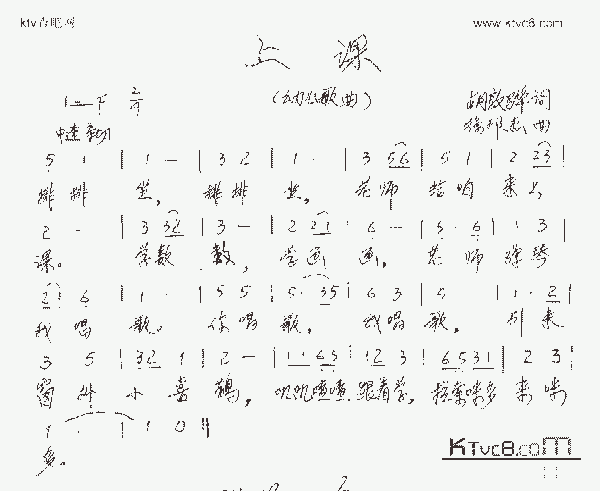 ktv吧 www.ktvc8.com
上 课
1=F 2/4 (幼儿歌曲) 词
中速 曲
5 1 | 1 - | 3 2 | 1 · | 3 56 | 5 1 | 2 23 |
排排 坐, 排排 坐, 老师 给咱 来上
2 · | 3 32 | 3 - | 2 21 | 6 - | 5 · 6 | 1 3 |
课。 学数 数, 学画 画, 老 师 弹琴
6 | 1 · | 5 5 | 5 · 35 | 6 3 | 5 | 1 · 2 |
我 唱 歌。 你唱 歌, 我唱 歌, 引来
3 5 | 32 1 | 2 - | 11 63 | 12 3 | 6531 | 2 3 |
窗外 小喜 鹊, 叽叽喳喳 跟着学, 来咪
1 · | 1 0 ‖
多。
KTvc8.com